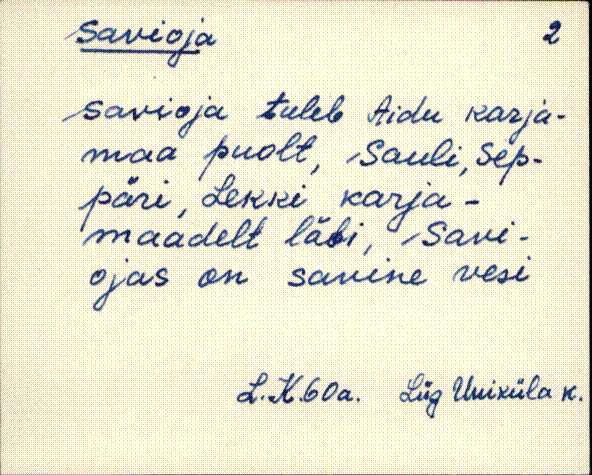 Savioja 2
Savioja tuleb Aidu karja-
maa puolt, Sauli, Sep-
päri, Lekki karja-
maadelt läbi, Savi-
ojas on savine vesi
L.K. 60a. Lüg Uniküla k.